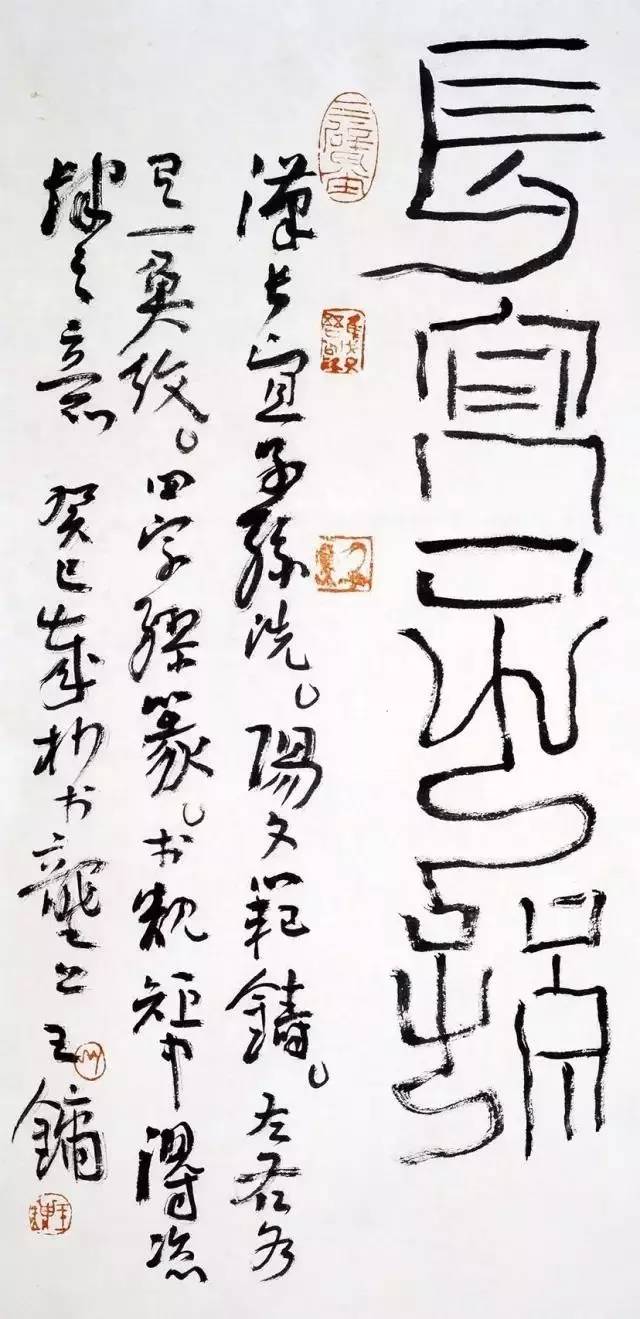 長宜子孫
漢長宜子孫洗。陽文範鑄。左右各
具一魚紋。四字繆篆。於規矩中得恣
肆之意 癸巳歲杪於 王鏞